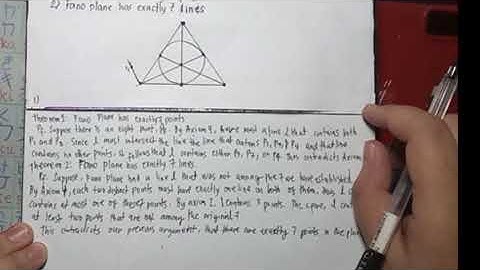 2) Fano plane has exactly 7 lines
1)
Theorem 1: Fano Plane has exactly 7 points
Pf. Suppose there is an eight point, P8. By Axiom 4, there must a line l that contains both
P1 and P8. Since l must intersect the line that contains P3, P4 and that line
contains no other points, it follows that l contains either This contradicts Axiom
Theorem 2: Fano plane has exactly 7 lines.
Pf. Suppose Fano plane had a line l that was not among the 7 we have established
By Axiom 4, each two distinct points must have exactly one line on both of them. Thus l
contains at most one of those 7 points. By axiom 2, l contains 3 points. Therefore, l cont
at least two points that are not among the original 7
This contradicts our previous argument, that there are exactly 7 points in the plane